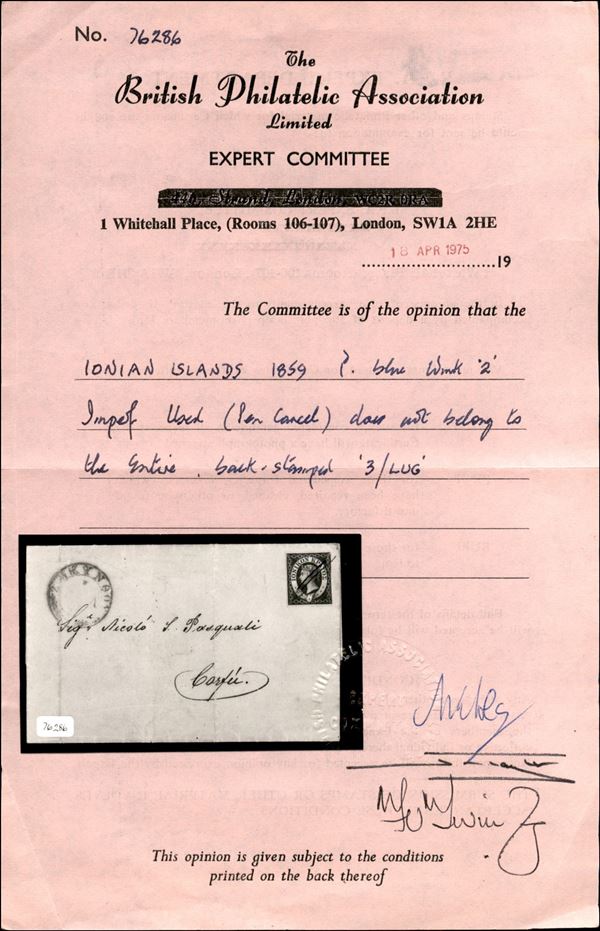 No. 76286
The
British Philatelic Association
Limited
EXPERT COMMITTEE
Strand, London, WC2R 0RA
1 Whitehall Place, (Rooms 106-107), London, SW1A 2HE
18 APR 1975
19
The Committee is of the opinion that the
IONIAN ISLANDS 1859 ?. blue Wmk '2'
Imperf Used (Pen Cancel) does not belong to
the Entire, back-stamped '3/LUG'
Sigr Nicoló S. Pasquali
Corfú.
76286
This opinion is given subject to the conditions
printed on the back thereof